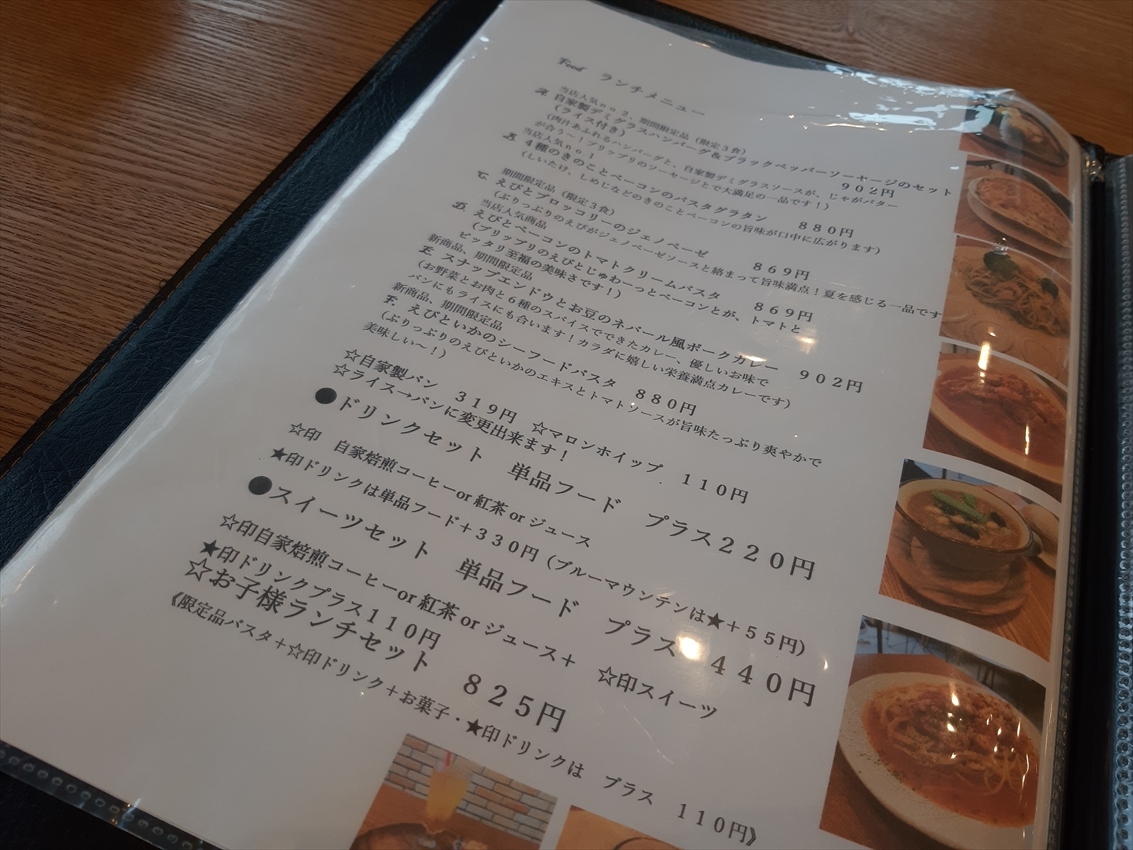 Food ランチメニュー
当店人気no2、期間限定品(限定3食)
A 自家製デミグラスハンバーグ&ブラックペッパーソーセージのセット
(ライス付き) 902円
(肉汁あふれるハンバーグと、自家製デミグラスソースが、じゃがバター
が合うー!プリップリのソーセージとで大満足の一品です!)
当店人気no1
B 4種のきのことベーコンのパスタグラタン 880円
(しいたけ、しめじなどのきのことベーコンの旨味が口中に広がります)
期間限定品(限定3食)
C えびとブロッコリーのジェノベーゼ 869円
(ぷりっぷりのえびがジェノベーゼソースと絡まって旨味満点!夏を感じる一品です
当店人気商品
D えびとベーコンのトマトクリームパスタ 869円
(プリップリのえびとじゅわーっとベーコンとが、トマトと
ピッタリ至福の美味さです!)
新商品、期間限定品
E スナップエンドウとお豆のネパール風ポークカレー 902円
(お野菜とお肉と6種のスパイスでできたカレー、優しいお味で
パンにもライスにも合います!カラダに嬉しい栄養満点カレーです)
新商品、期間限定品
F えびといかのシーフードパスタ 880円
(ぷりっぷりのえびといかのエキスとトマトソースが旨味たっぷり爽やかで
美味しい〜!)
☆自家製パン 319円 ☆マロンホイップ 110円
☆ライス→パンに変更出来ます!
●ドリンクセット 単品フード プラス220円
☆印 自家焙煎コーヒーor 紅茶 or ジュース
★印ドリンクは単品フード+330円(ブルーマウンテンは★+55円)
●スイーツセット 単品フード プラス 440円
☆印自家焙煎コーヒーor 紅茶 or ジュース+ ☆印スイーツ
★印ドリンクプラス110円
☆お子様ランチセット 825円
《限定品パスタ+☆印ドリンク+お菓子・★印ドリンクは プラス 110円》